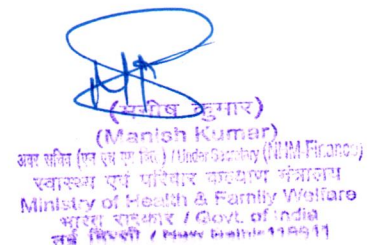 (मनीष कुमार)
(Manish Kumar)
अवर सचिव (एन एच एम वित्त) / Under Secretary (NHM-Finance)
स्वास्थ्य एवं परिवार कल्याण मंत्रालय
Ministry of Health & Family Welfare
भारत सरकार / Govt. of India
नई दिल्ली / New Delhi-